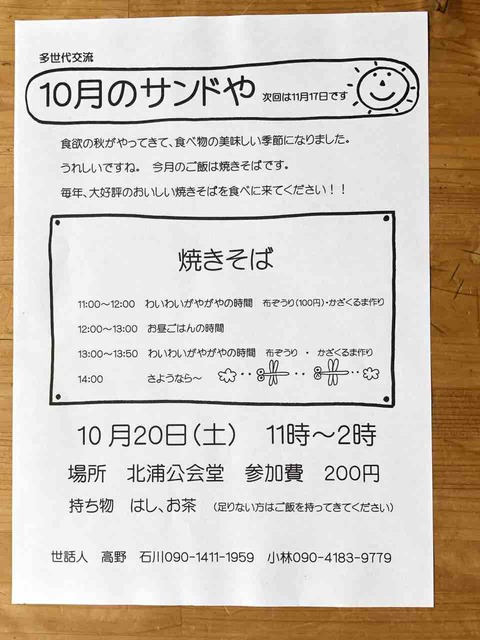 多世代交流
10月のサンドや 次回は11月17日です
食欲の秋がやってきて、食べ物の美味しい季節になりました。
うれしいですね。 今月のご飯は焼きそばです。
毎年、大好評のおいしい焼きそばを食べに来てください！！
焼きそば
11:00～12:00 わいわいがやがやの時間 布ぞうり(100円)・かざぐるま作り
12:00～13:00 お昼ごはんの時間
13:00～13:50 わいわいがやがやの時間 布ぞうり ・ かざぐるま作り
14:00 さようなら～
10月20日(土) 11時～2時
場所 北浦公会堂 参加費 200円
持ち物 はし、お茶 (足りない方はご飯を持ってきてください)
世話人 高野 石川090-1411-1959 小林090-4183-9779